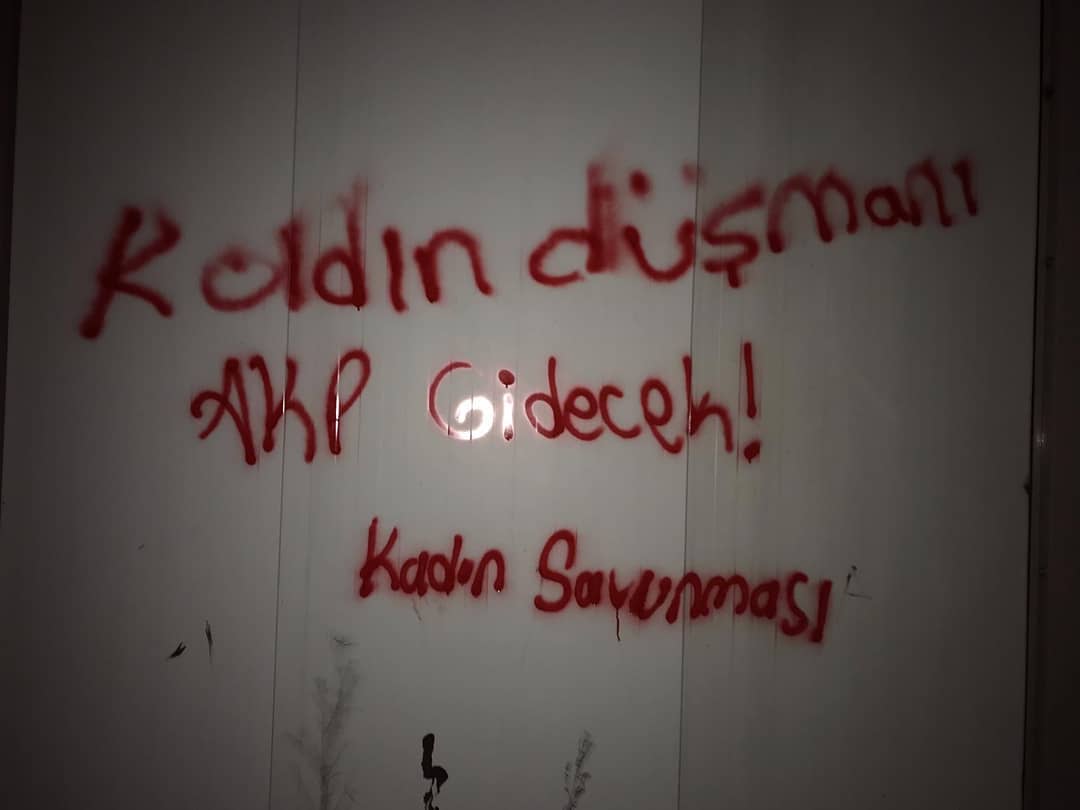 Kadın düşmanı
AKP Gidecek!
Kadın Savunması